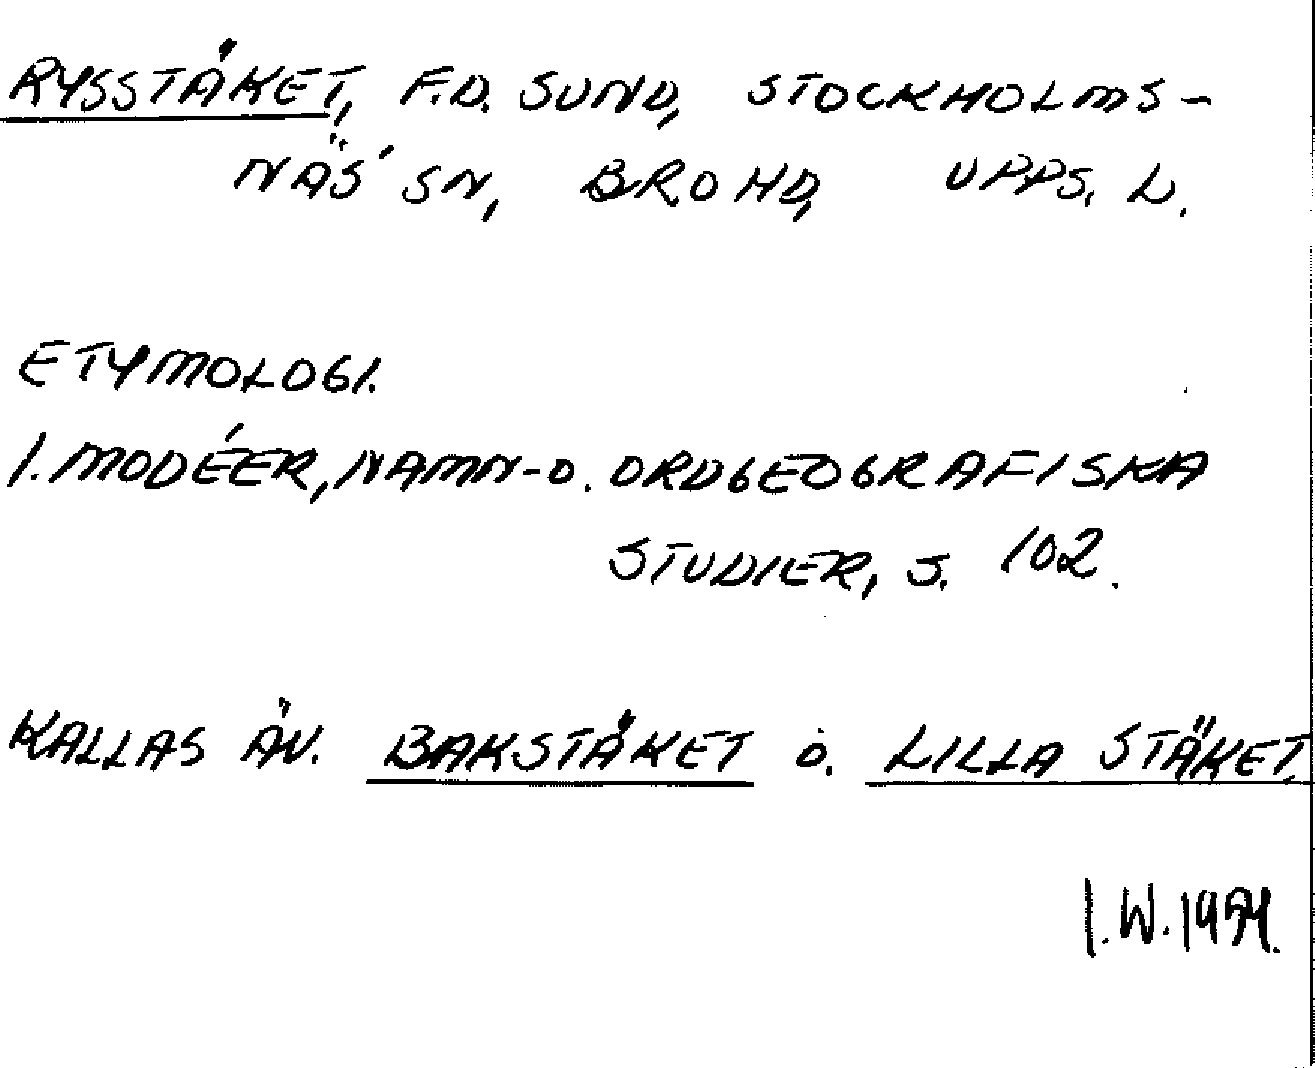 RYSSTÄKET, F.D. SUND, STOCKHOLMS-
NÄS' SN, BRO HD, UPPS. L.
ETYMOLOGI.
I. MODÉER, NAMN- O. ORDGEOGRAFISKA
STUDIER, S. 102.
KALLAS ÄV. BAKSTÄKET O. LILLA STÄKET.
I.W.